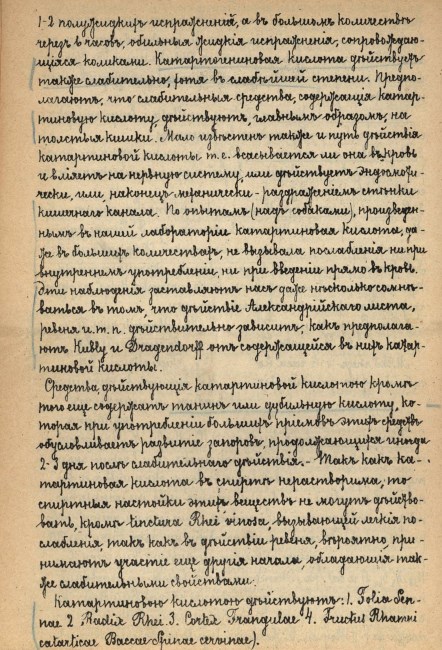 1-2 полужидкихъ испражненій, а въ большомъ количествѣ
черезъ 6 часовъ, обильныя жидкія испражненія, сопровождаю-
щіяся коликами. Катартогениновая кислота дѣйствуетъ
также слабительно, хотя въ слабѣйшей степени. Предпо-
лагаютъ, что слабительныя средства, содержащія катар-
тиновую кислоту, дѣйствуютъ, главнымъ образомъ, на
толстыя кишки. Мало извѣстенъ также и путь дѣйствія
катартиновой кислоты т.е. всасывается ли она въ кровь
и вліяетъ на нервную систему, или дѣйствуетъ эндосмоти-
чески, или, наконецъ механически - раздраженіемъ стѣнки
кишечнаго канала. По опытамъ (надъ собаками), произведен-
нымъ въ нашей лабораторіи катартиновая кислота, да-
же въ большихъ количествахъ, не вызывала послабленія ни при
внутреннемъ употребленіи, ни при введеніи прямо въ кровь.
Эти наблюденія заставляютъ насъ даже нѣсколько сомнѣ-
ваться въ томъ, что дѣйствіе Александрійскаго листа,
ревеня и.т.п. дѣйствительно зависитъ, какъ предполага-
ютъ Kubly и Dragendorff отъ содержащейся въ нихъ катар-
тиновой кислоты.
Средства дѣйствующія катартиновой кислотою кромѣ
того еще содержатъ танинъ или дубильную кислоту, ко-
торая при употребленіи большихъ пріемовъ этихъ средствъ
обусловливаетъ развитіе запоровъ, продолжающихся иногда
2-3 дня послѣ слабительнаго дѣйствія. - Такъ какъ ка-
тартиновая кислота въ спиртѣ нерастворима, то
спиртныя настойки этихъ веществъ не могутъ дѣйство-
вать, кромѣ tinctura Rhei vinosa вызывающей легкія по-
слабленія, такъ какъ въ дѣйствіи ревеня, вѣроятно, при-
нимаютъ участіе еще другія начала, обладающія так-
же слабительными свойствами.
Катартиновою кислотою дѣйствуютъ: 1. Folia Sen-
nae 2 Radix Rhei. 3. Cortex Frangulae 4. Fructus Rhamni
catarticae Baccae Spinae cervinae).